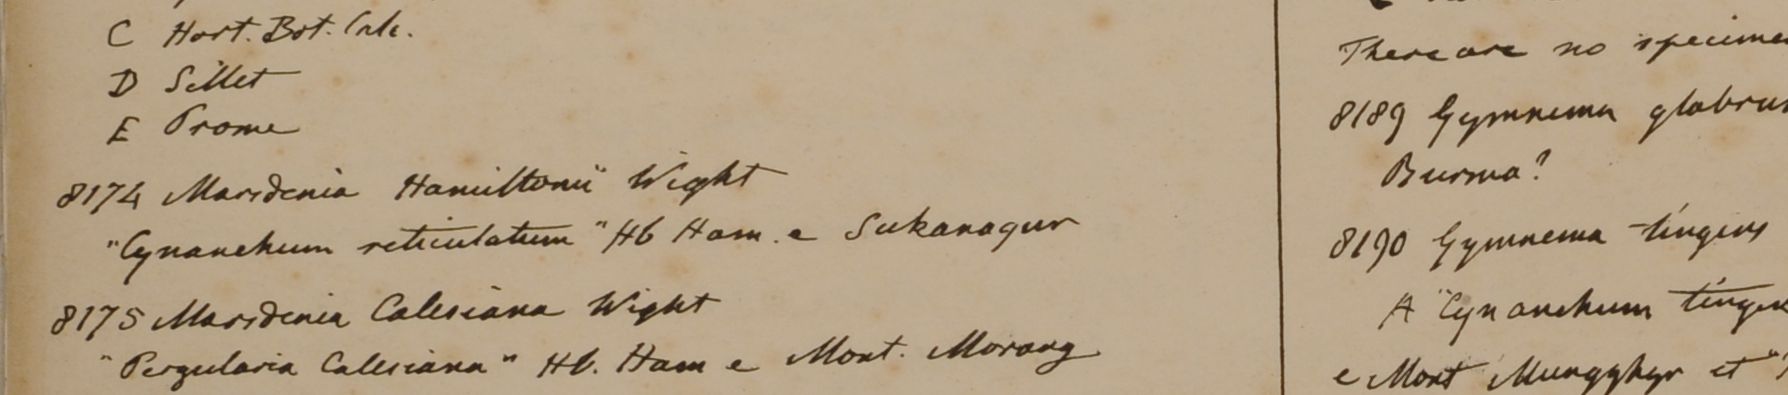 C Hort. Bot. Calc.
D Sillet
E Prome
8174 Marsdenia Hamiltonii Wight
"Cynanchum reticulatum" Hb Ham. e Sukanagur
8175 Marsdenia Calesiana Wight
"Pergularia Calesiana" Hb. Ham e Mont. Morang
There are no specime
8189 Gymnema glabrum
Burma?
8190 Gymnema tingens
A "Cynanchum tingen
e Mont Mungghyr et "